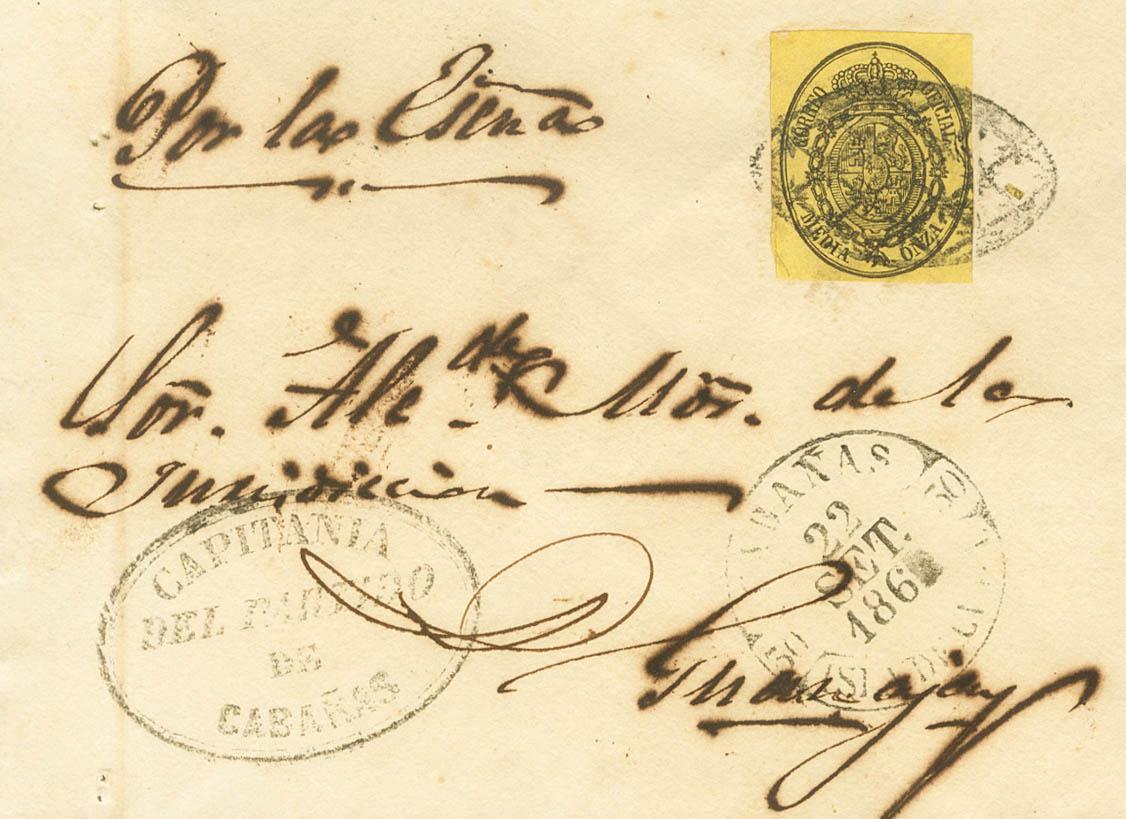 Por las
CORREO OFICIAL
MEDIA ONZA
Sor. Alc.de Mor. de la
Jurisdiccion
CAPITANIA
DEL PARTIDO
DE
CABAÑAS
22
SET.
186
Guanajay